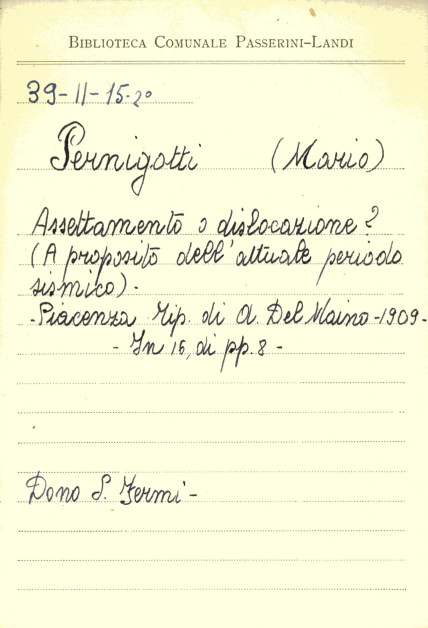 BIBLIOTECA COMUNALE PASSERINI-LANDI
39-II-15.2º
Pernigotti (Mario)
Assettamento o dislocazione?
(A proposito dell'attuale periodo
sismico).
-Piacenza Tip. di A. Del Maino-1909-
- In 16, di pp. 8 -
Dono S. Fermi-